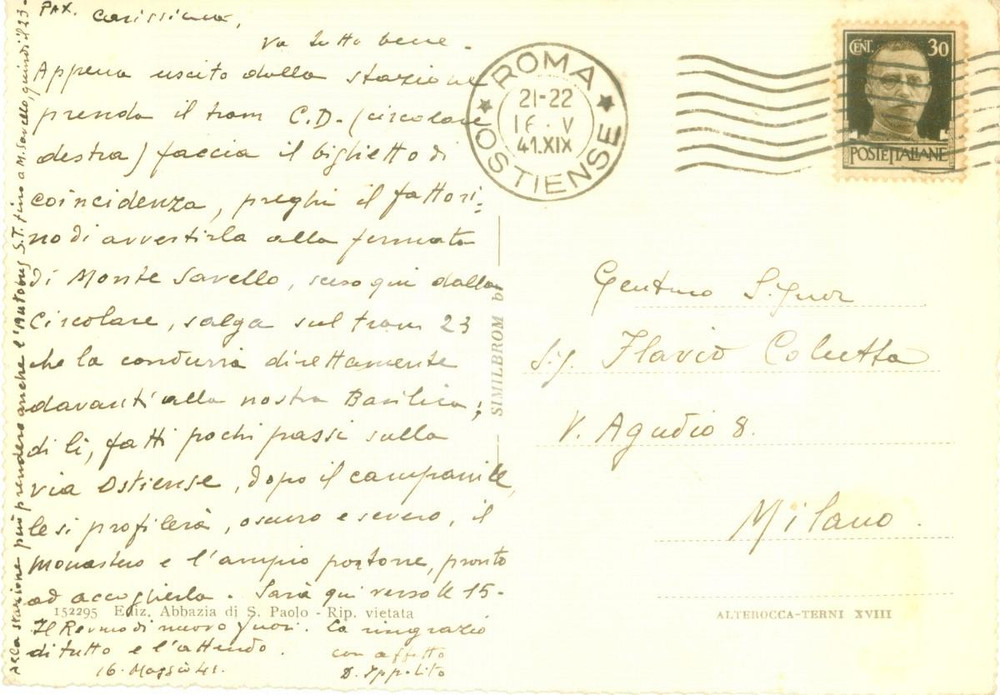 PAX. Carissimo,
va tutto bene.
Appena uscito dalla stazione
prenda il tram C.D. (circolare
destra) faccia il biglietto di
coincidenza, preghi il fattori=
no di avvertirla alla fermata
di Monte Savello, scenda qui dalla
Circolare, salga sul tram 23
che la condurrà direttamente
davanti alla nostra Basilica;
di lì, fatti pochi passi sulla
via Ostiense, dopo il campanile,
le si profilerà, oscuro e severo, il
Monastero e l'ampio portone, pronto
ad accoglierla. Sarà qui verso le 15-
152295 Ediz. Abbazia di S. Paolo - Rip. vietata
Il Rev.mo di nuovo fuori. La ringrazio
di tutto e l'attendo. con affetto
16. Maggio 41. D. Ippolito
Alla stazione può prendere anche l'Autobus S.T. fino a M. Savello, quindi il 23-
SIMILBROM
ROMA
21-22
16·V
41.XIX
OSTIENSE
CENT. 30
POSTE ITALIANE
Sig. Flavio
V. Agudio 8.
Milano.
ALTEROCCA-TERNI XVIII